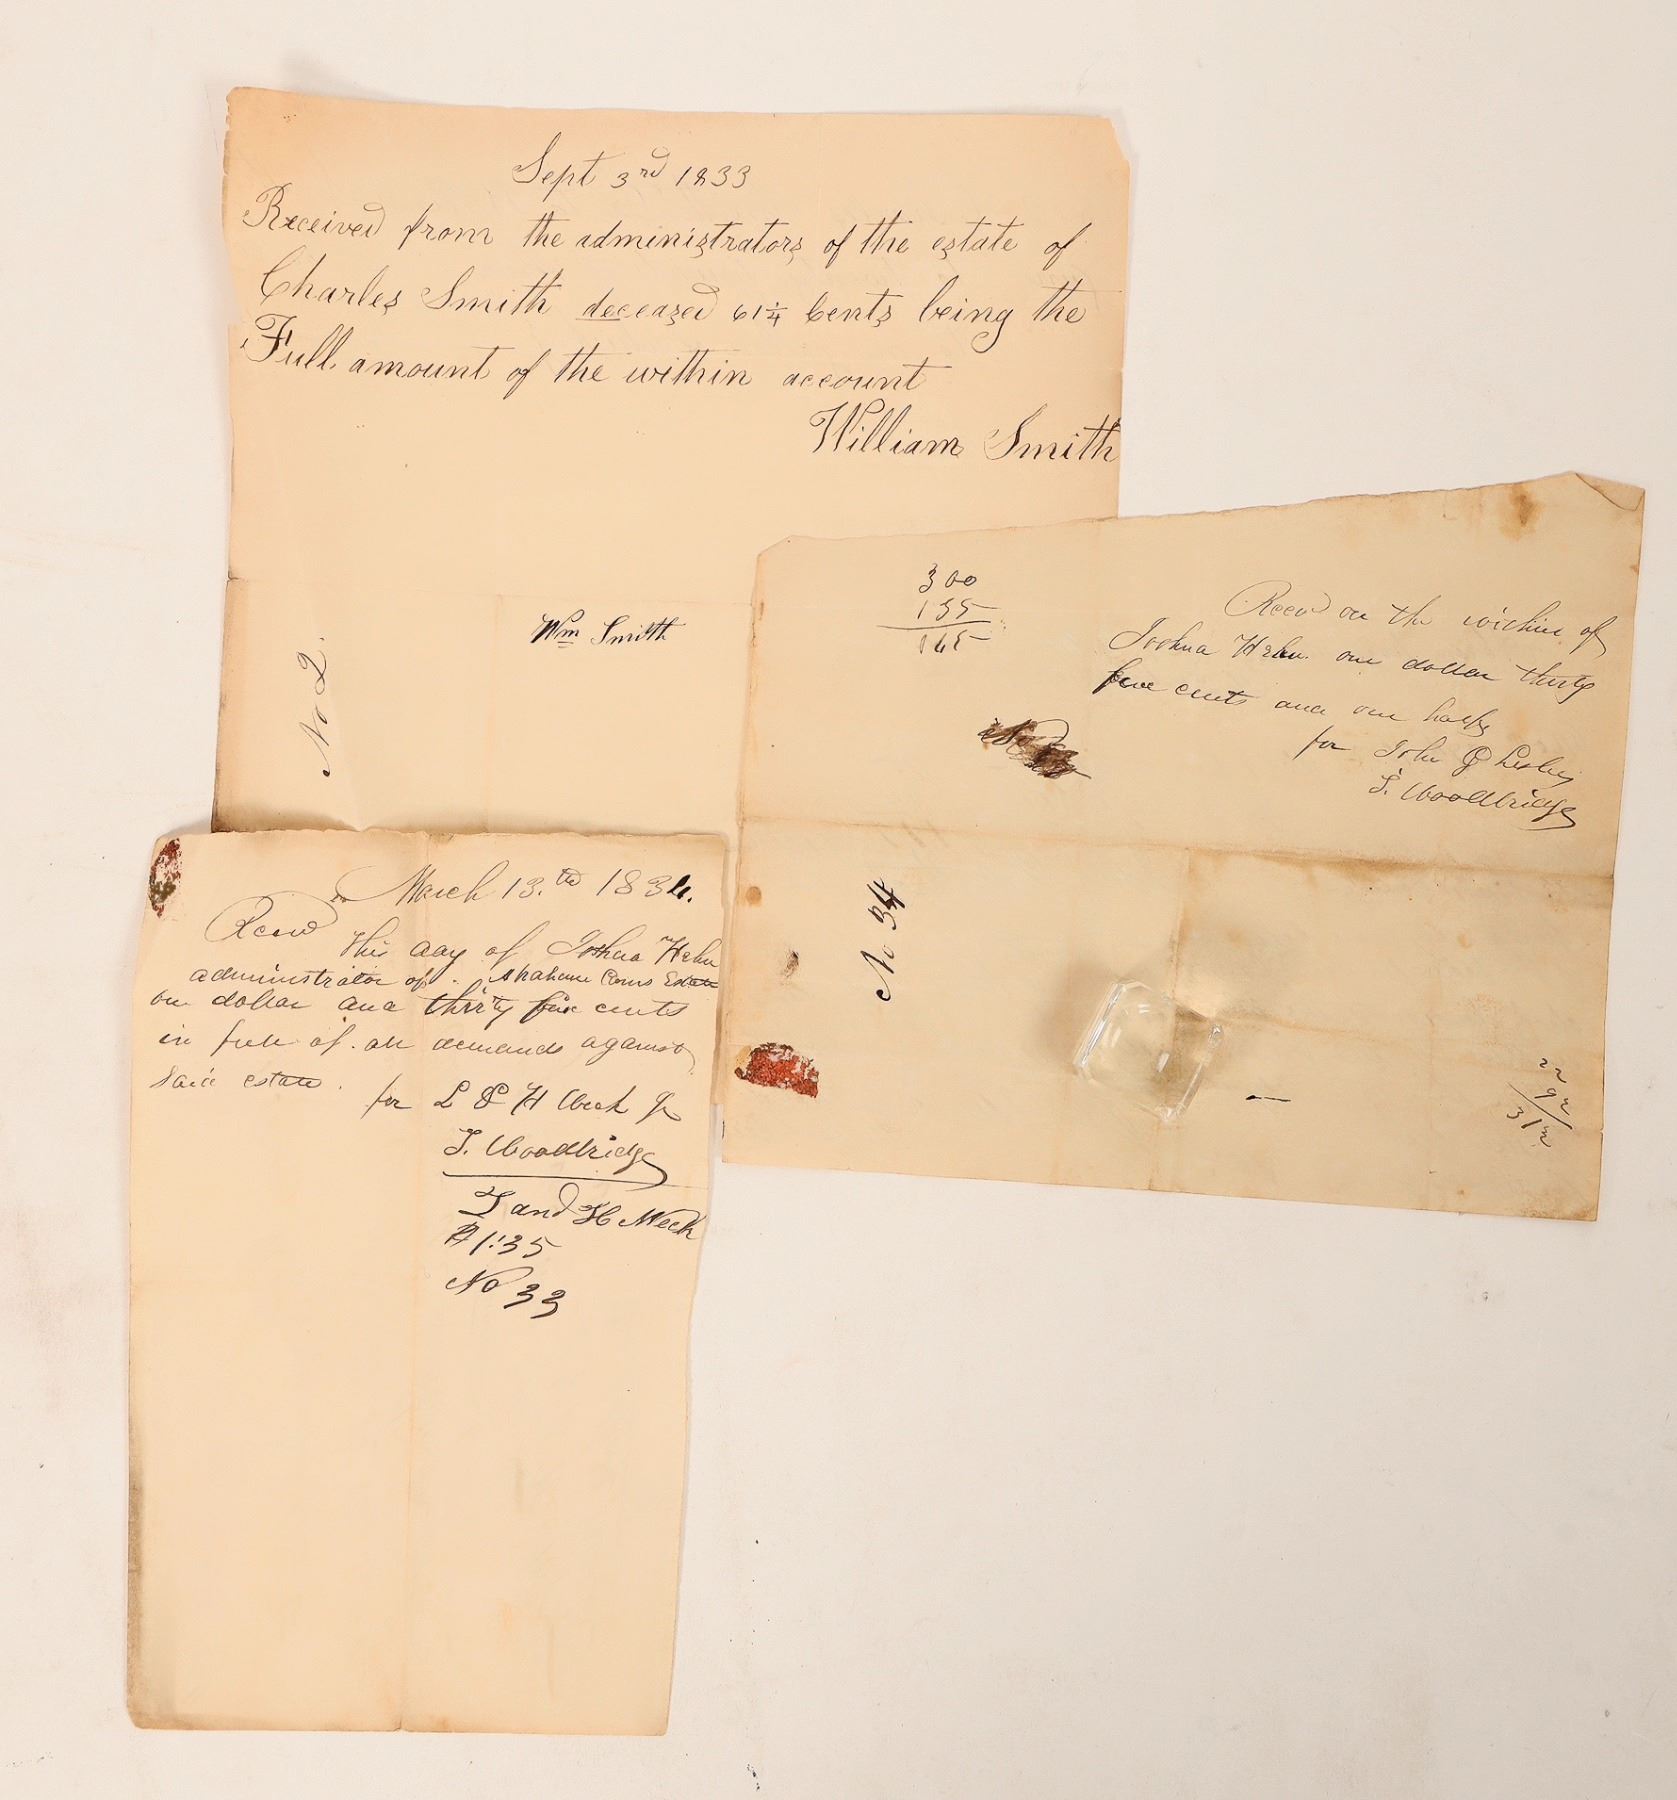 Sept 3rd 1833
Received from the administrators of the estate of
Charles Smith deceased 61¼ Cents being the
Full amount of the within account
William Smith
Wm Smith
No 2.
300
135
165
Recd on the within of
Joshua Hehn one dollar thirty
five cents and one half
for John &
T. Woodbridge
No 34
22
9
31
March 13.th 1834.
Recd this day of Joshua Hehn
administrator of Abraham Estate
one dollar and thirty five cents
in full of all demands against
said estate.
for L & H Meek
T. Woodbridge
L and H Meek
$1:35
No 33